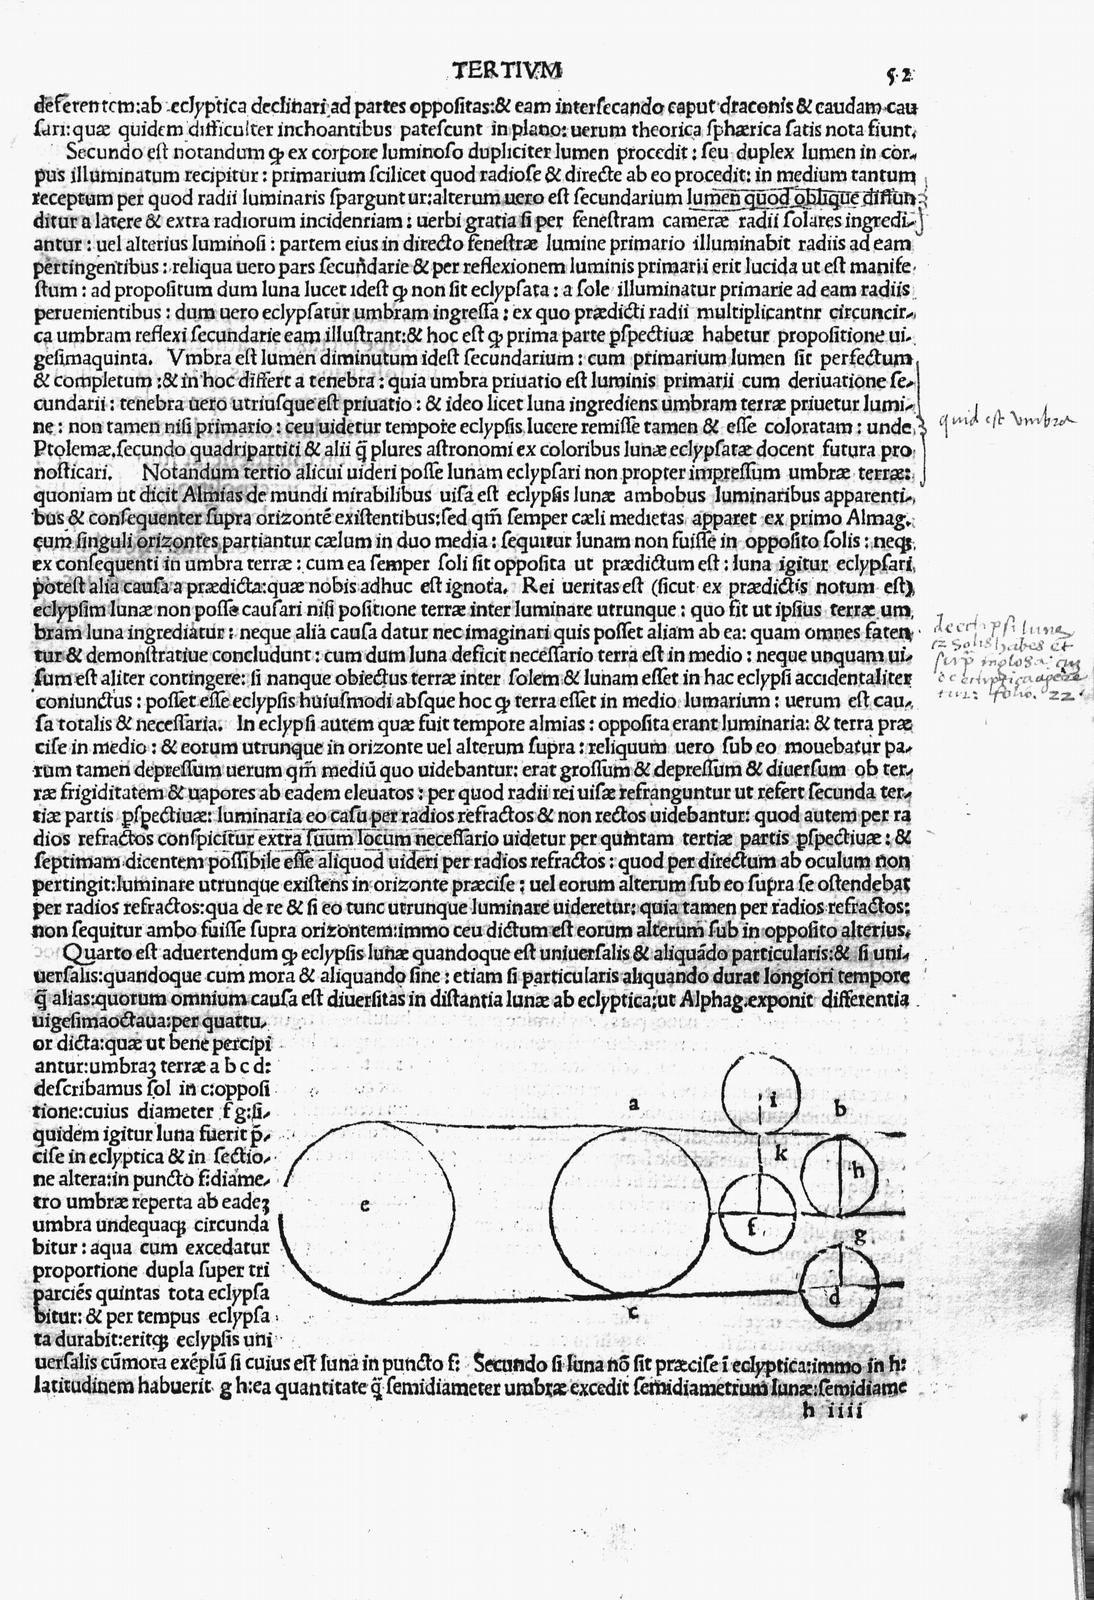 TERTIVM
52
deferentem:ab eclyptica declinari ad partes oppositas:& eam intersecando caput draconis & caudam cau
sari:quæ quidem difficulter inchoantibus patescunt in plano: uerum theorica sphærica satis nota fiunt.
Secundo est notandum ꝙ ex corpore luminoso dupliciter lumen procedit : seu duplex lumen in cor-
pus illuminatum recipitur : primarium scilicet quod radiose & directe ab eo procedit: in medium tantum
receptum per quod radii luminaris sparguntur:alterum uero est secundarium lumen quod oblique diffun
ditur a latere & extra radiorum incidenriam : uerbi gratia si per fenestram cameræ radii solares ingredi-
antur : uel alterius luminosi : partem eius in directo fenestræ lumine primario illuminabit radiis ad eam
pertingentibus : reliqua uero pars secundarie & per reflexionem luminis primarii erit lucida ut est manife
stum : ad propositum dum luna lucet idest ꝙ non sit eclypsata : a sole illuminatur primarie ad eam radiis
peruenientibus : dum uero eclypsatur umbram ingressa : ex quo prædicti radii multiplicantnr circuncir-
ca umbram reflexi secundarie eam illustrant:& hoc est ꝙ prima parte ꝑspectiuæ habetur propositione ui-
gesimaquinta. Vmbra est lumen diminutum idest secundarium : cum primarium lumen sit perfectum
& completum :& in hoc differt a tenebra : quia umbra priuatio est luminis primarii cum deriuatione se-
cundarii : tenebra uero utriusque est priuatio : & ideo licet luna ingrediens umbram terræ priuetur lumi-
ne : non tamen nisi primario : ceu uidetur tempore eclypsis lucere remisse tamen & esse coloratam : unde
Ptolemæ.secundo quadripartiti & alii q̃ plures astronomi ex coloribus lunæ eclypsatæ docent futura pro
nosticari. Notandum tertio alicui uideri posse lunam eclypsari non propter impressim umbræ terræ:
quoniam ut dicit Almias de mundi mirabilibus uisa est eclypsis lunæ ambobus luminaribus apparenti-
bus & consequenter supra orizontē existentibus:sed qm̃ semper cæli medietas apparet ex primo Almag.
cum singuli orizontes partiantur cælum in duo media : sequitur lunam non fuisse in opposito solis : neqꝫ
ex consequenti in umbra terræ : cum ea semper soli sit opposita ut prædictum est : luna igitur eclypsari
potest alia causa a prædicta:quæ nobis adhuc est ignota. Rei ueritas est (sicut ex prædictis notum est)
eclypsim lunæ non posse causari nisi positione terræ inter luminare utrunque : quo fit ut ipsius terræ um
bram luna ingrediatur : neque alia causa datur nec imaginari quis posset aliam ab ea: quam omnes faten
tur & demonstratiue concludunt : cum dum luna deficit necessario terra est in medio : neque unquam ui-
sum est aliter contingere: si nanque obiectus terræ inter solem & lunam esset in hac eclypsi accidentaliter
coniunctus : posset esse eclypsis huiusmodi absque hoc ꝙ terra esset in medio lumarium : uerum est cau-
sa totalis & necessaria. In eclypsi autem quæ fuit tempore almias : opposita erant luminaria: & terra præ
cise in medio : & eorum utrunque in orizonte uel alterum supra : reliquum uero sub eo mouebatur pa-
rum tamen depressum uerum qm̃ mediū quo uidebantur: erat grossum & depressum & diuersum ob ter-
ræ frigiditatem & uapores ab eadem eleuatos : per quod radii rei uisæ refranguntur ut refert secunda ter-
tiæ partis ꝑspectiuæ: luminaria eo casu per radios refractos & non rectos uidebantur: quod autem per ra
dios refractos conspicitur extra suum locum necessario uidetur per quintam tertiæ partis ꝑspectiuæ : &
septimam dicentem possibile esse aliquod uideri per radios refractos : quod per directum ab oculum non
pertingit:luminare utrunque existens in orizonte præcise : uel eorum alterum sub eo supra se ostendebat
per radios refractos:qua de re & si eo tunc utrunque luminare uideretur: quia tamen per radios refractos:
non sequitur ambo fuisse supra orizontem:immo ceu dictum est eorum alterum sub in opposito alterius.
Quarto est aduertendum ꝙ eclypsis lunæ quandoque est uniuersalis & aliquādo particularis:& si uni-
uersalis:quandoque cum mora & aliquando sine : etiam si particularis aliquando durat longiori tempore
q̃ alias:quorum omnium causa est diuersitas in distantia lunæ ab eclyptica:ut Alphag.exponit differentia
uigesimaoctaua:per quattu-
or dicta:quæ ut bene percipi
antur:umbraꝫ terræ a b c d:
describamus sol in c:opposi
tione:cuius diameter f g:si-
quidem igitur luna fuerit p̄-
cise in eclyptica & in sectio-
ne altera:in puncto f:diame-
tro umbræ reperta ab eadeꝫ
umbra undequaqꝫ circunda
bitur : aqua cum excedatur
proportione dupla super tri
parciēs quintas tota eclypsa
bitur: & per tempus eclypsa
ta durabit:eritqꝫ eclypsis uni
uersalis cūmora exēplū si cuius est luna in puncto f: Secundo si luna nō sit præcise ī eclyptica:immo in h:
latitudinem habuerit g h:ea quantitate q̃ semidiameter umbræ excedit semidiametrum lunæ:semidiame
h iiii
quid est vmbra
de eclipsi lune
et solis habes et
folio. 22
a
b
i
k
h
e
f
g
d
c